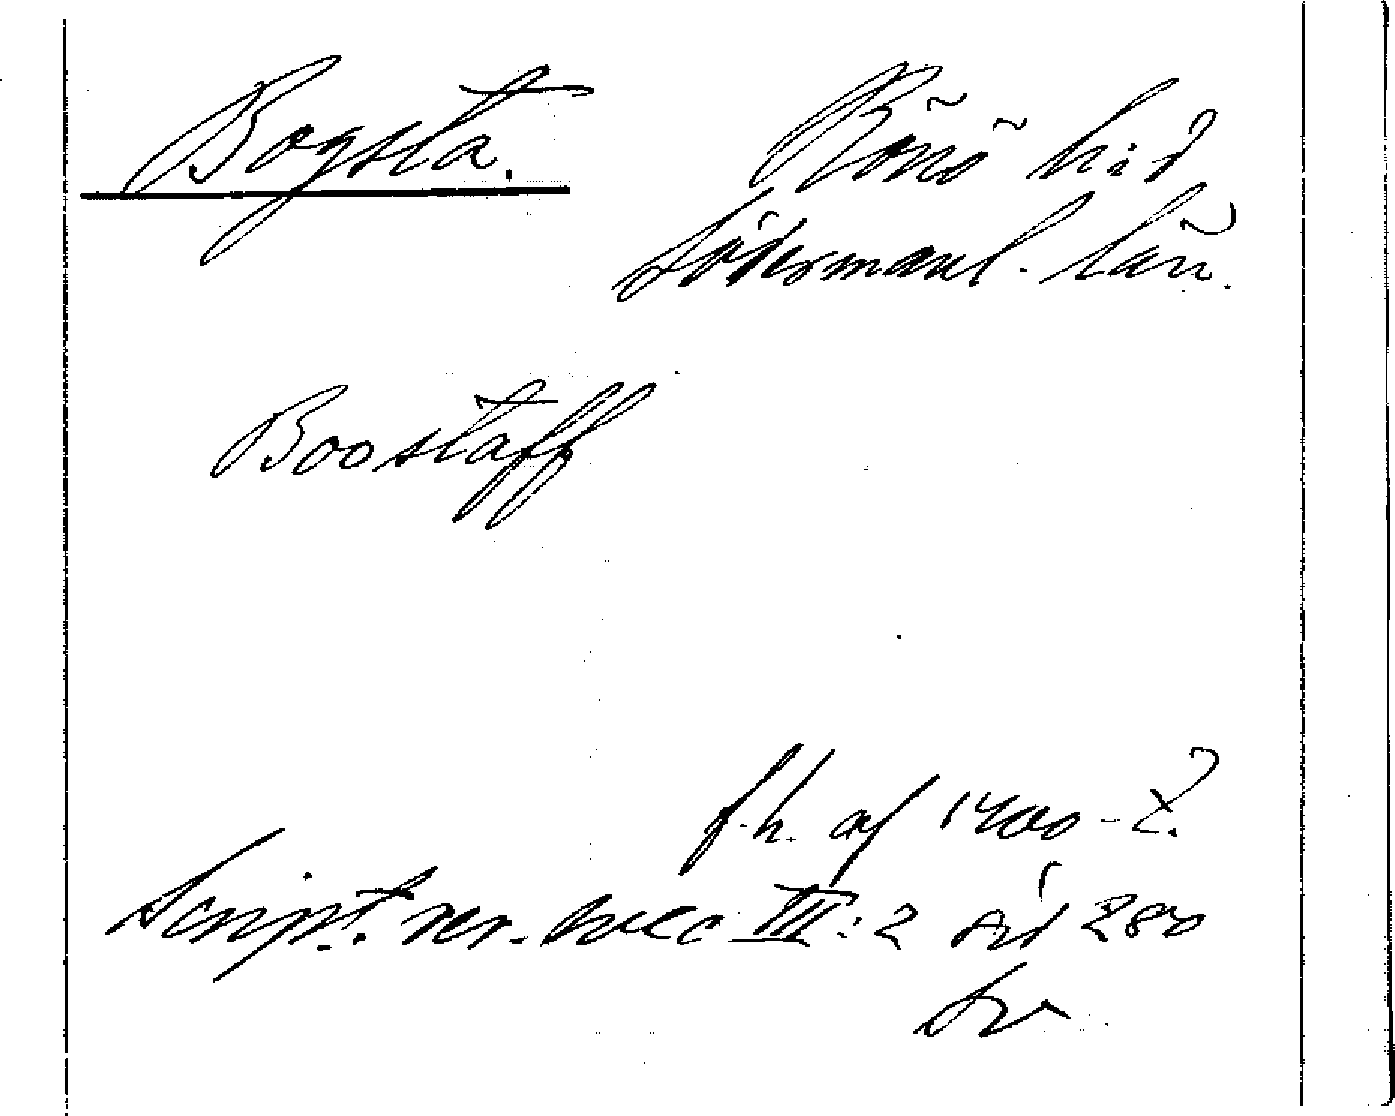 Bogsta. Rönö h:d
Södermanl. län.
Boostaff
f.h. af 1400-t.
Script. rer. svec III:2 sid 280
Sv